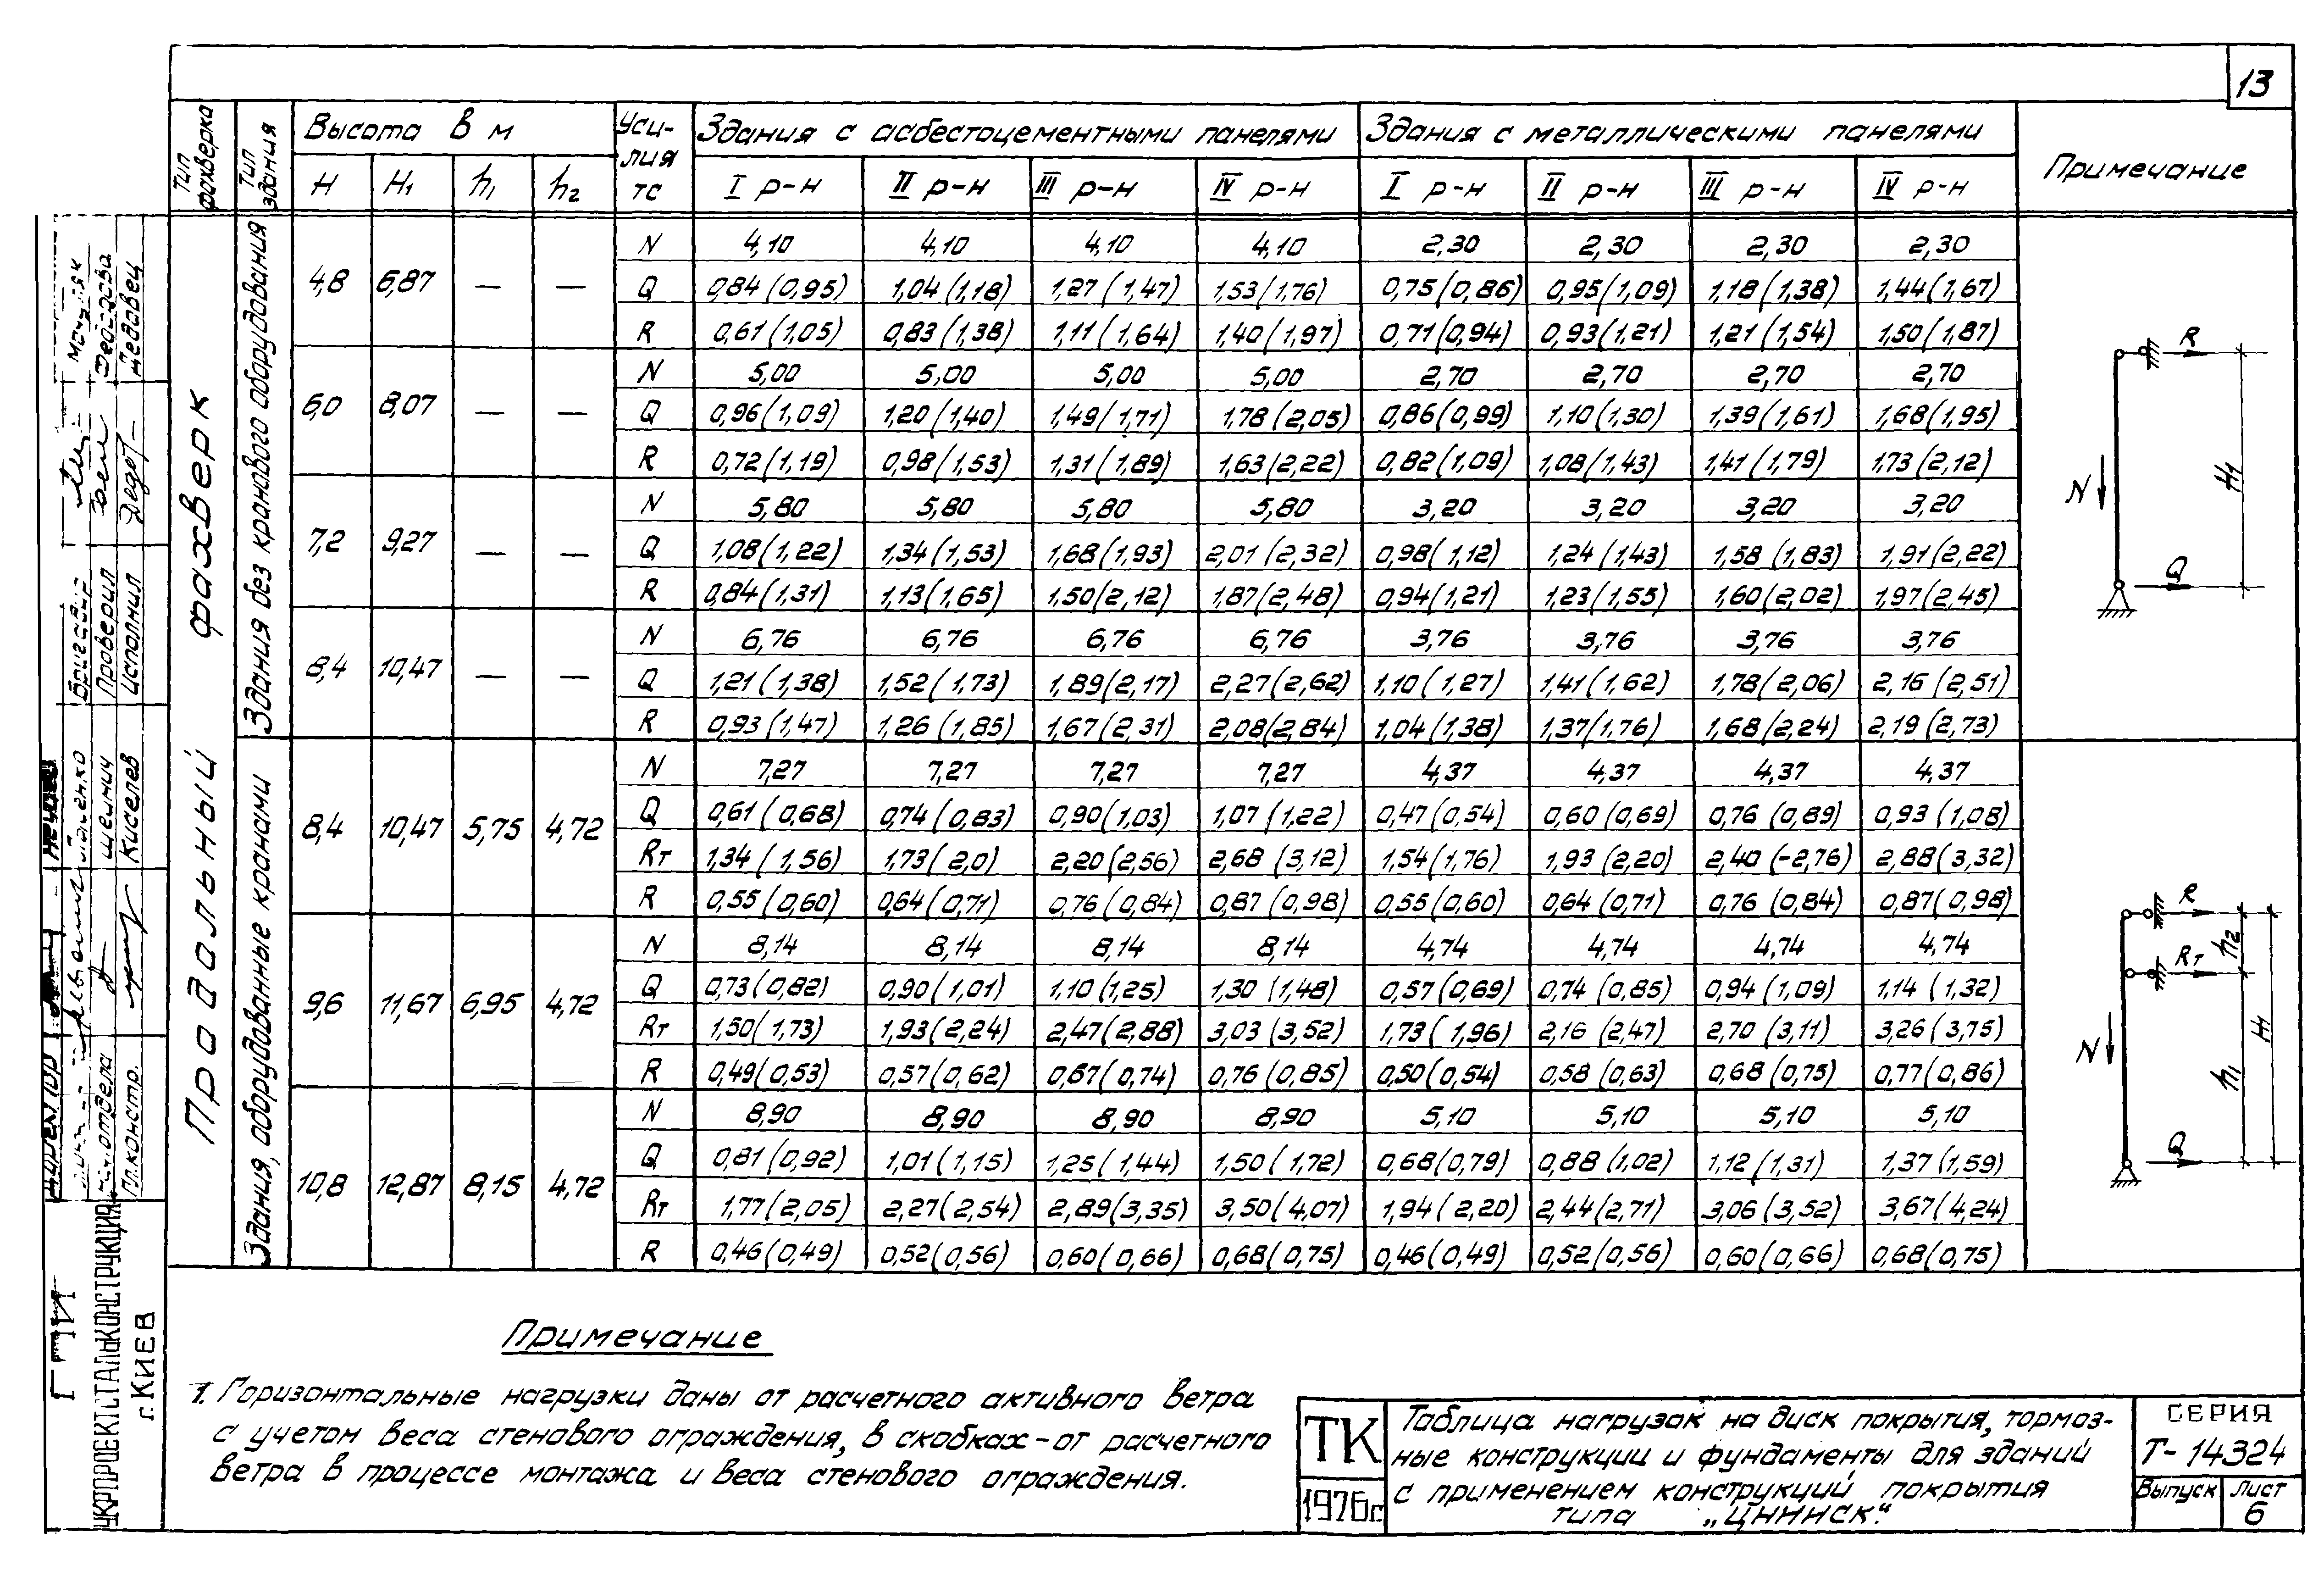 13
Тип фахверка
Тип здания
Высота в м
Уси-
лия
тс
Здания с асбестоцементными панелями
Здания с металлическими панелями
Примечание
H H₁ h₁ h₂
I р-н II р-н III р-н IV р-н I р-н II р-н III р-н IV р-н
Продольный фахверк
Здания без кранового оборудования
N 4,10 4,10 4,10 4,10 2,30 2,30 2,30 2,30
4,8 6,87 — — Q 0,84(0,95) 1,04(1,18) 1,27(1,47) 1,53(1,76) 0,75(0,86) 0,95(1,09) 1,18(1,38) 1,44(1,67)
R 0,61(1,05) 0,83(1,38) 1,11(1,64) 1,40(1,97) 0,71(0,94) 0,93(1,21) 1,21(1,54) 1,50(1,87)
N 5,00 5,00 5,00 5,00 2,70 2,70 2,70 2,70
6,0 8,07 — — Q 0,96(1,09) 1,20(1,40) 1,49(1,71) 1,78(2,05) 0,86(0,99) 1,10(1,30) 1,39(1,61) 1,68(1,95)
R 0,72(1,19) 0,98(1,53) 1,31(1,89) 1,63(2,22) 0,82(1,09) 1,08(1,43) 1,41(1,79) 1,73(2,12)
N 5,80 5,80 5,80 5,80 3,20 3,20 3,20 3,20
7,2 9,27 — — Q 1,08(1,22) 1,34(1,53) 1,68(1,93) 2,01(2,32) 0,98(1,12) 1,24(1,43) 1,58(1,83) 1,91(2,22)
R 0,84(1,31) 1,13(1,65) 1,50(2,12) 1,87(2,48) 0,94(1,21) 1,23(1,55) 1,60(2,02) 1,97(2,45)
N 6,76 6,76 6,76 6,76 3,76 3,76 3,76 3,76
8,4 10,47 — — Q 1,21(1,38) 1,52(1,73) 1,89(2,17) 2,27(2,62) 1,10(1,27) 1,41(1,62) 1,78(2,06) 2,16(2,51)
R 0,93(1,47) 1,26(1,85) 1,67(2,31) 2,08(2,84) 1,04(1,38) 1,37(1,76) 1,68(2,24) 2,19(2,73)
Здания, оборудованные кранами
N 7,27 7,27 7,27 7,27 4,37 4,37 4,37 4,37
8,4 10,47 5,75 4,72 Q 0,61(0,68) 0,74(0,83) 0,90(1,03) 1,07(1,22) 0,47(0,54) 0,60(0,69) 0,76(0,89) 0,93(1,08)
Rт 1,34(1,56) 1,73(2,0) 2,20(2,56) 2,68(3,12) 1,54(1,76) 1,93(2,20) 2,40(-2,76) 2,88(3,32)
R 0,55(0,60) 0,64(0,71) 0,76(0,84) 0,87(0,98) 0,55(0,60) 0,64(0,71) 0,76(0,84) 0,87(0,98)
N 8,14 8,14 8,14 8,14 4,74 4,74 4,74 4,74
9,6 11,67 6,95 4,72 Q 0,73(0,82) 0,90(1,01) 1,10(1,25) 1,30(1,48) 0,57(0,69) 0,74(0,85) 0,94(1,09) 1,14(1,32)
Rт 1,50(1,73) 1,93(2,24) 2,47(2,88) 3,03(3,52) 1,73(1,96) 2,16(2,47) 2,70(3,11) 3,26(3,75)
R 0,49(0,53) 0,57(0,62) 0,67(0,74) 0,76(0,85) 0,50(0,54) 0,58(0,63) 0,68(0,75) 0,77(0,86)
N 8,90 8,90 8,90 8,90 5,10 5,10 5,10 5,10
10,8 12,87 8,15 4,72 Q 0,81(0,92) 1,01(1,15) 1,25(1,44) 1,50(1,72) 0,68(0,79) 0,88(1,02) 1,12(1,31) 1,37(1,59)
Rт 1,77(2,05) 2,27(2,54) 2,89(3,35) 3,50(4,07) 1,94(2,20) 2,44(2,71) 3,06(3,52) 3,67(4,24)
R 0,46(0,49) 0,52(0,56) 0,60(0,66) 0,68(0,75) 0,46(0,49) 0,52(0,56) 0,60(0,66) 0,68(0,75)
R
N
H₁
Q
R
Rт
h₂
N
h₁
H₁
Q
Примечание
1. Горизонтальные нагрузки даны от расчетного активного ветра
с учетом веса стенового ограждения, в скобках – от расчетного
ветра в процессе монтажа и веса стенового ограждения.
ТК
1976г
Таблица нагрузок на диск покрытия, тормоз-
ные конструкции и фундаменты для зданий
с применением конструкций покрытия
типа „ЦНИИСК".
СЕРИЯ
Т-14324
Выпуск
Лист
6
ГПИ
УКРПРОЕКТСТАЛЬКОНСТРУКЦИЯ
г. КИЕВ
Директор
отдела
Гл.констр.
Киселев
Бригадир
Проверил
Исполнил
Дедовец